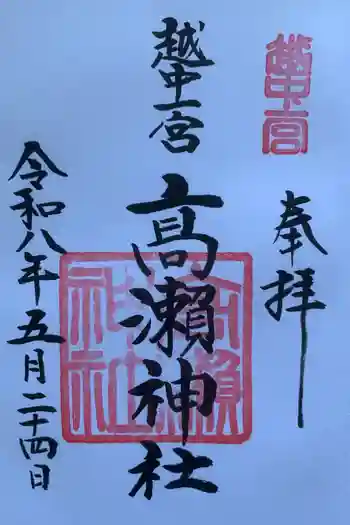 奉拝
越中一宮
高瀬神社
令和八年五月二十四日
越中一宮
高瀬神社